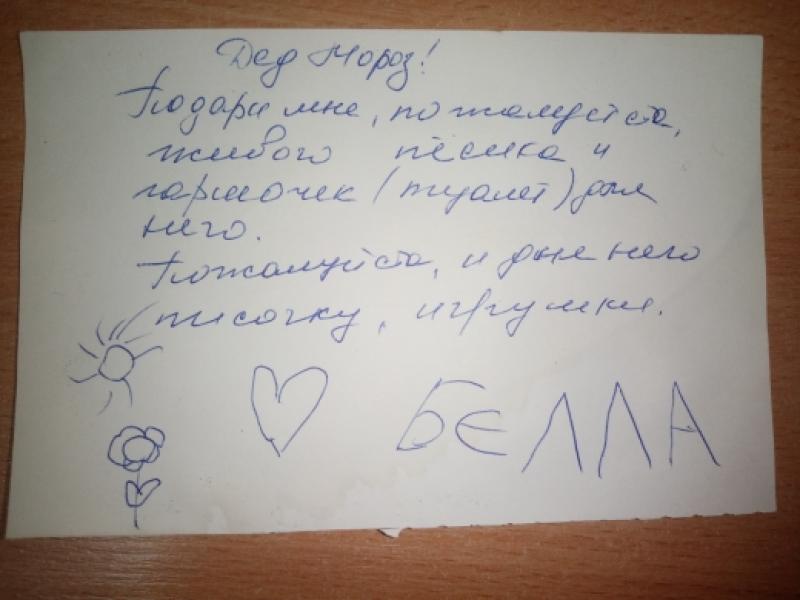 Дед Мороз!
Подари мне, пожалуйста,
живого пёсика и
горшочек (туалет) для
него.
Пожалуйста, и для него
мисочку, игрушки.
БЕЛЛА